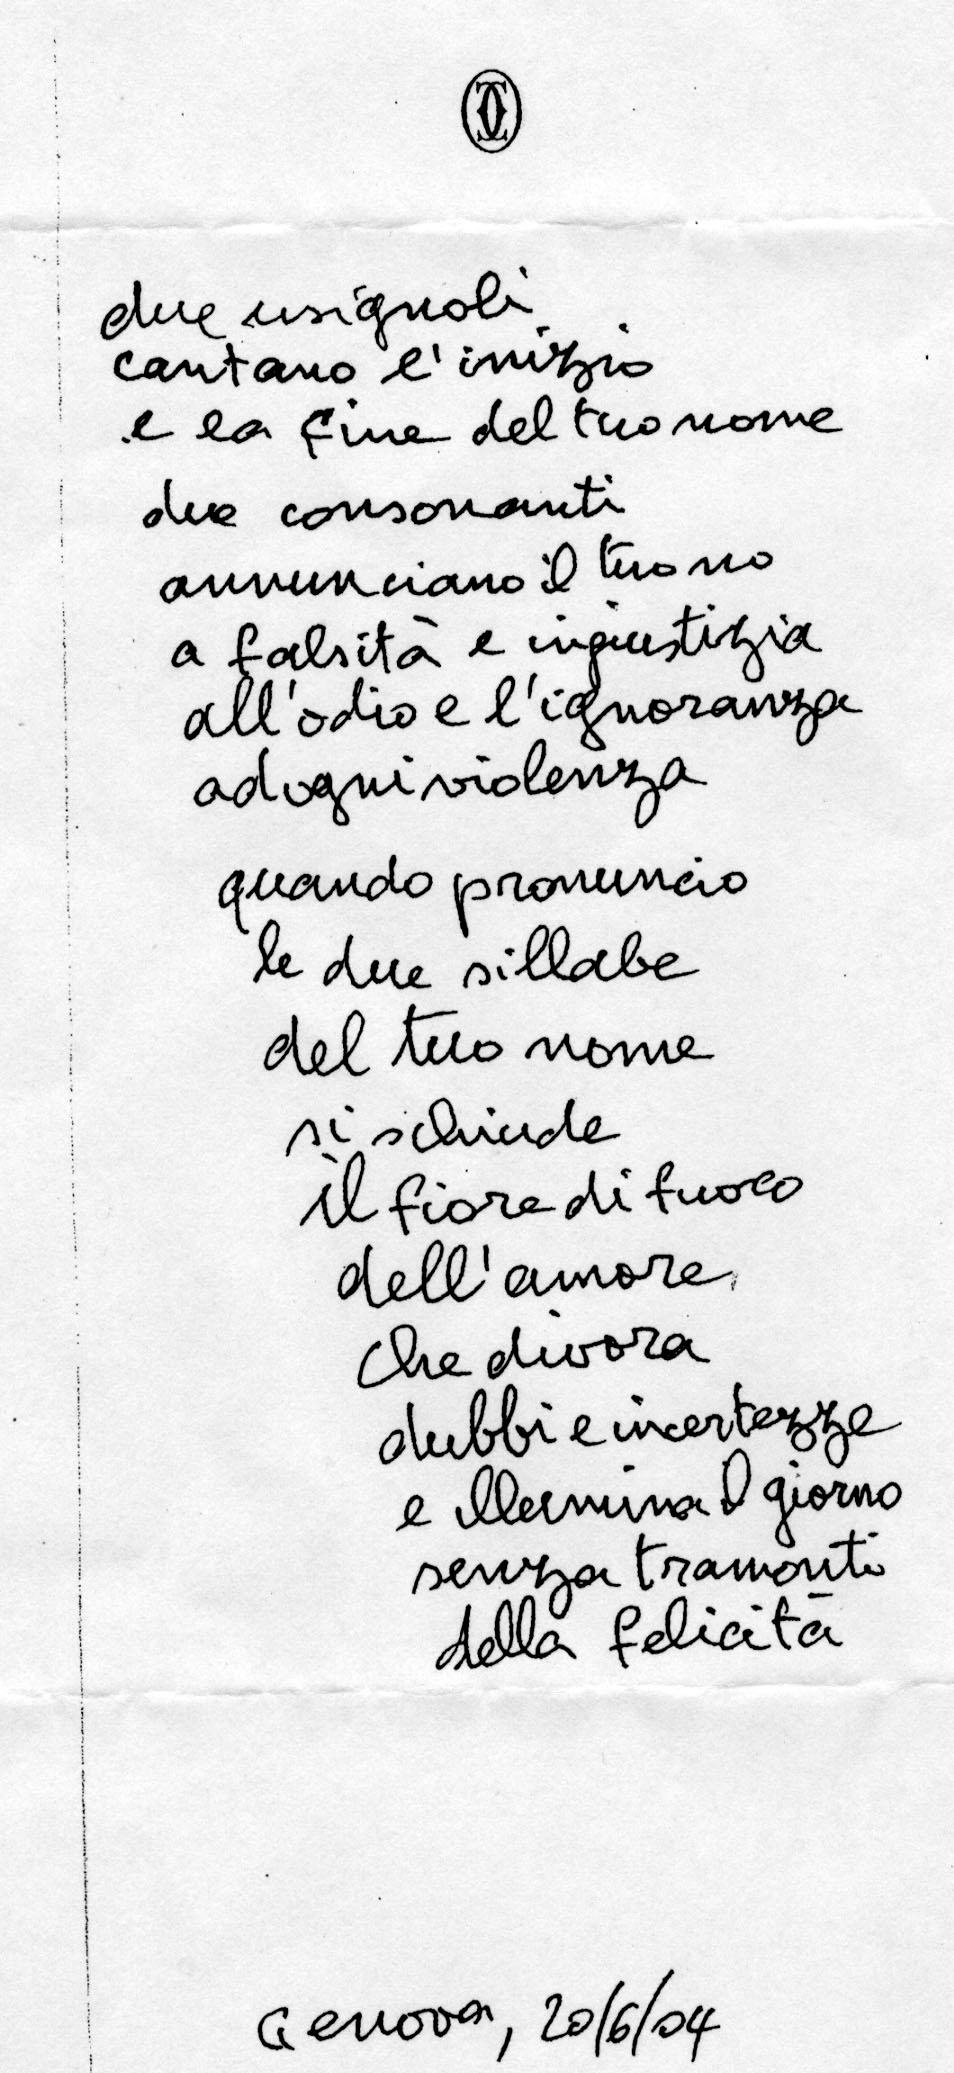 due usignoli
cantano l'inizio
e la fine del tuo nome
due consonanti
annunciano il tuo no
a falsità e ingiustizia
all'odio e l'ignoranza
ad ogni violenza
quando pronuncio
le due sillabe
del tuo nome
si schiude
il fiore di fuoco
dell'amore
che divora
dubbi e incertezze
e illumina il giorno
senza tramonti
della felicità
Genova, 20/6/04